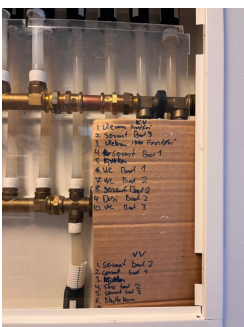 KV
1. Uterom Frostfri
2. Servant Bad 3
3. Utekran Frostfri
4. Servant Bad 1
5. Kjøkken
6. WC Bad 1
7. WC Bad 2
8. Servant Bad 2
9. Dusj Bad 2
10. WC Bad 3
VV
1. Servant bad 2
2. Servant bad 1
3. Kjøkken
4. bad 2
5. Servant bad 3
6.